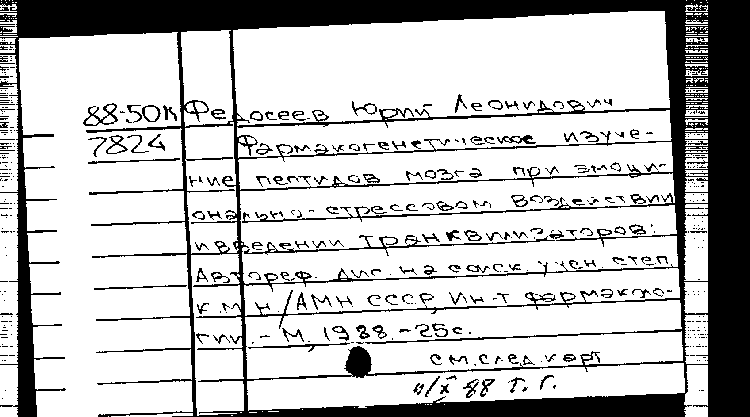 88-50К Федосеев Юрий Леонидович
7824 Фармакогенетическое изуче-
ние пептидов мозга при эмоци-
онально-стрессовом воздействии
и введении транквилизаторов:
Автореф. дис. на соиск. учен. степ.
к.м.н/АМН СССР, Ин-т фармаколо-
гии. - М, 1988. - 25с.
см. след. карт
88 Г. Г.